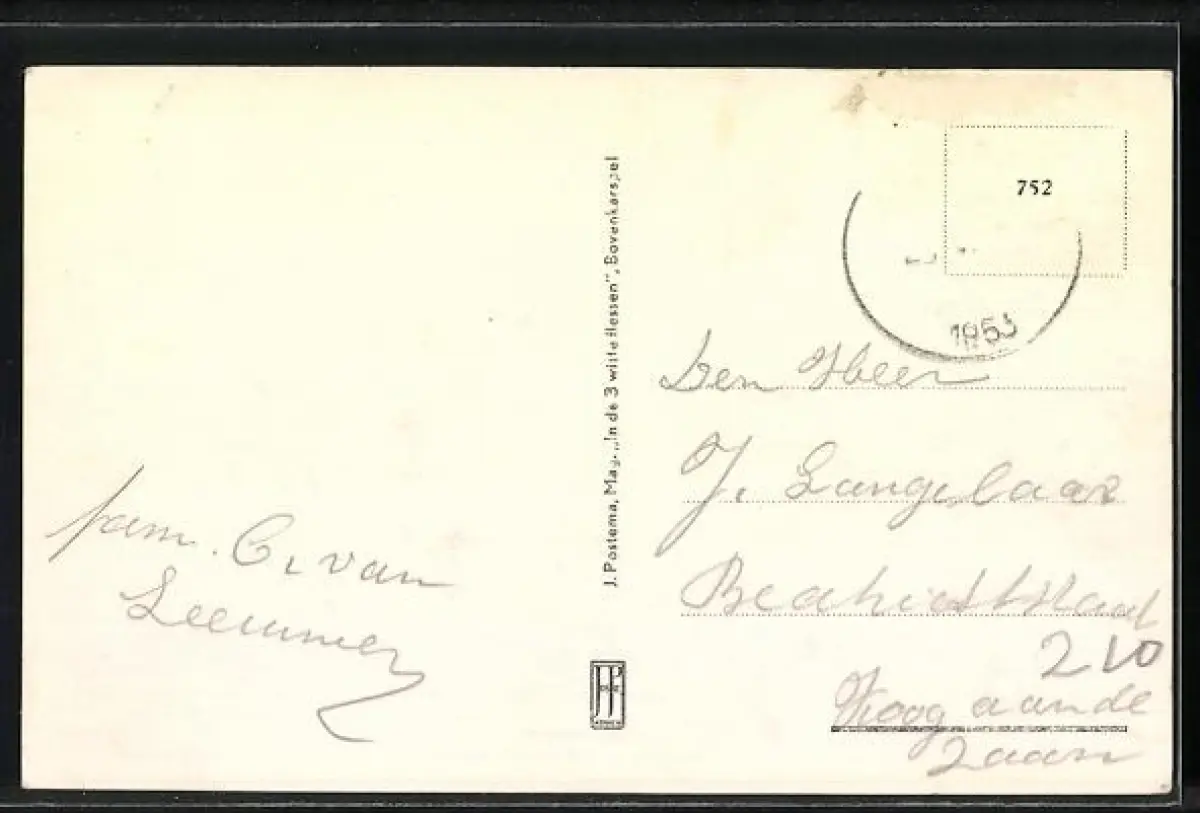 fam. C. van
Leeuwen
J. Postema, Mag. „In de 3 witte flessen", Bovenkarspel
752
Den Heer
J. Langelaar
210
Koog aan de
Zaan